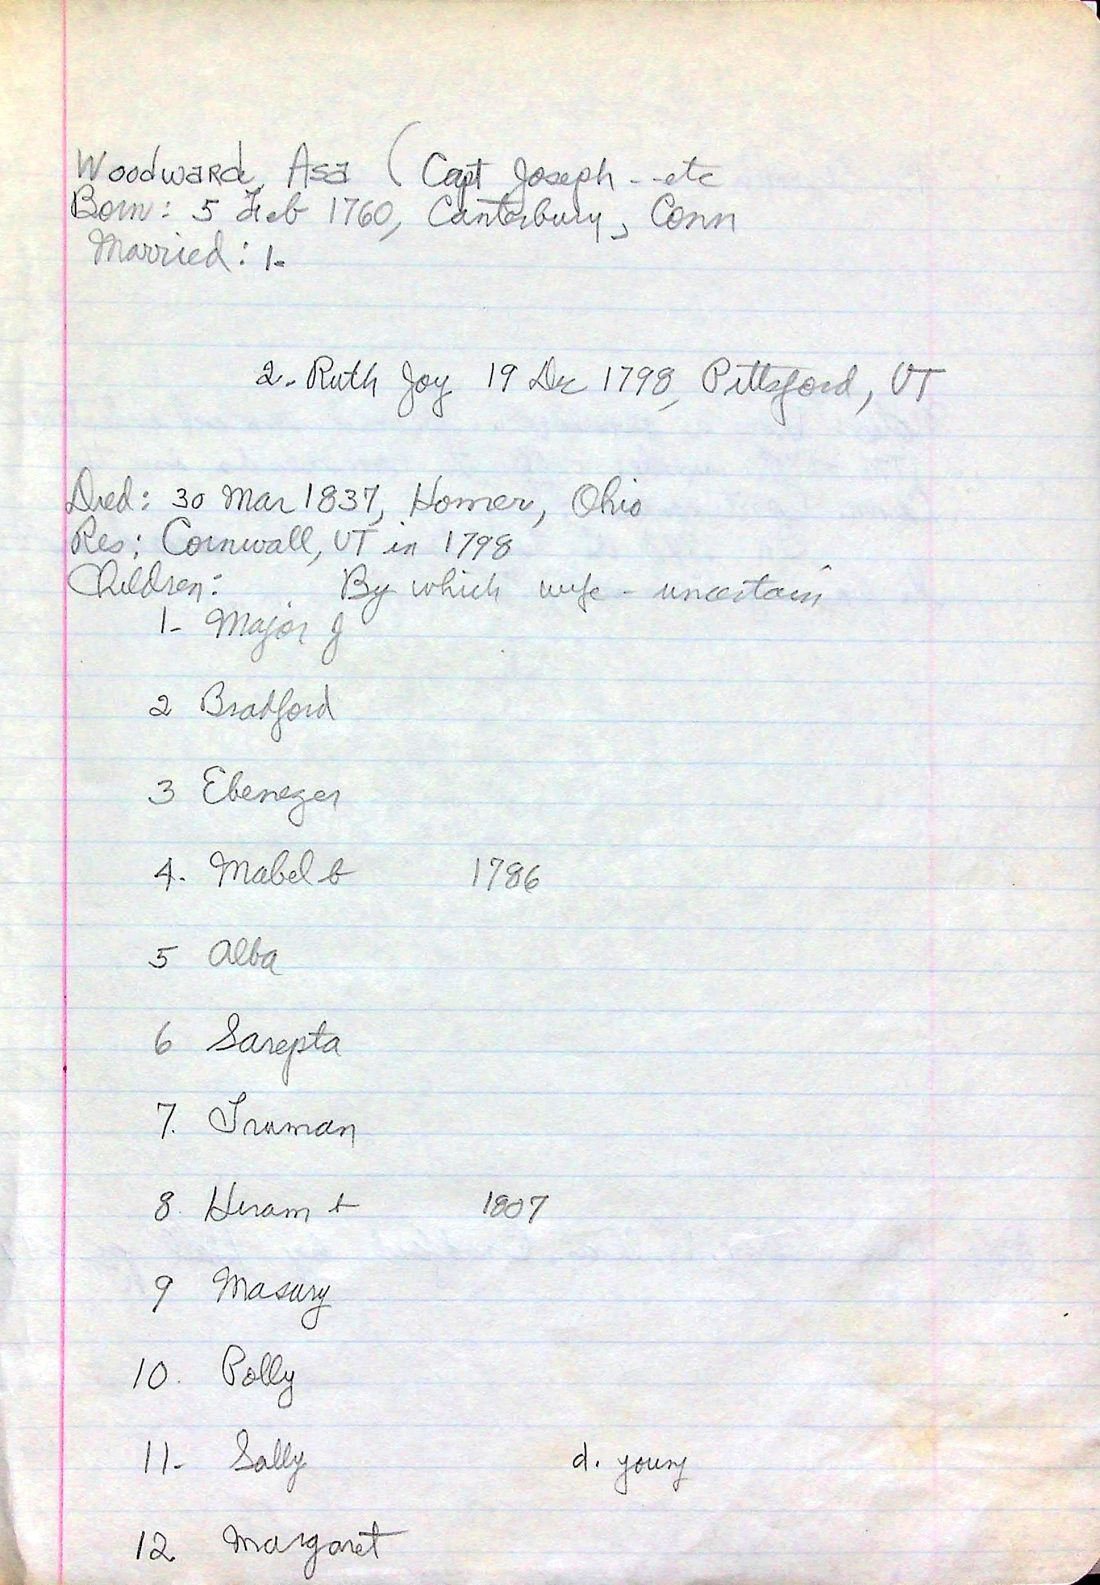 Woodward, Asa ( Capt Joseph - - etc
Born: 5 Feb 1760, Canterbury, Conn
Married: 1-
2. Ruth Joy 19 Dec 1798, Pittsford, VT
Died: 30 Mar 1837, Homer, Ohio
Res: Cornwall, VT in 1798
Children: By which wife - uncertain
1- Major J
2 Bradford
3 Ebenezer
4. Mabel b 1786
5 Alba
6 Sarepta
7. Truman
8. Hiram b 1807
9 Masury
10. Polly
11- Sally d. young
12. Margaret